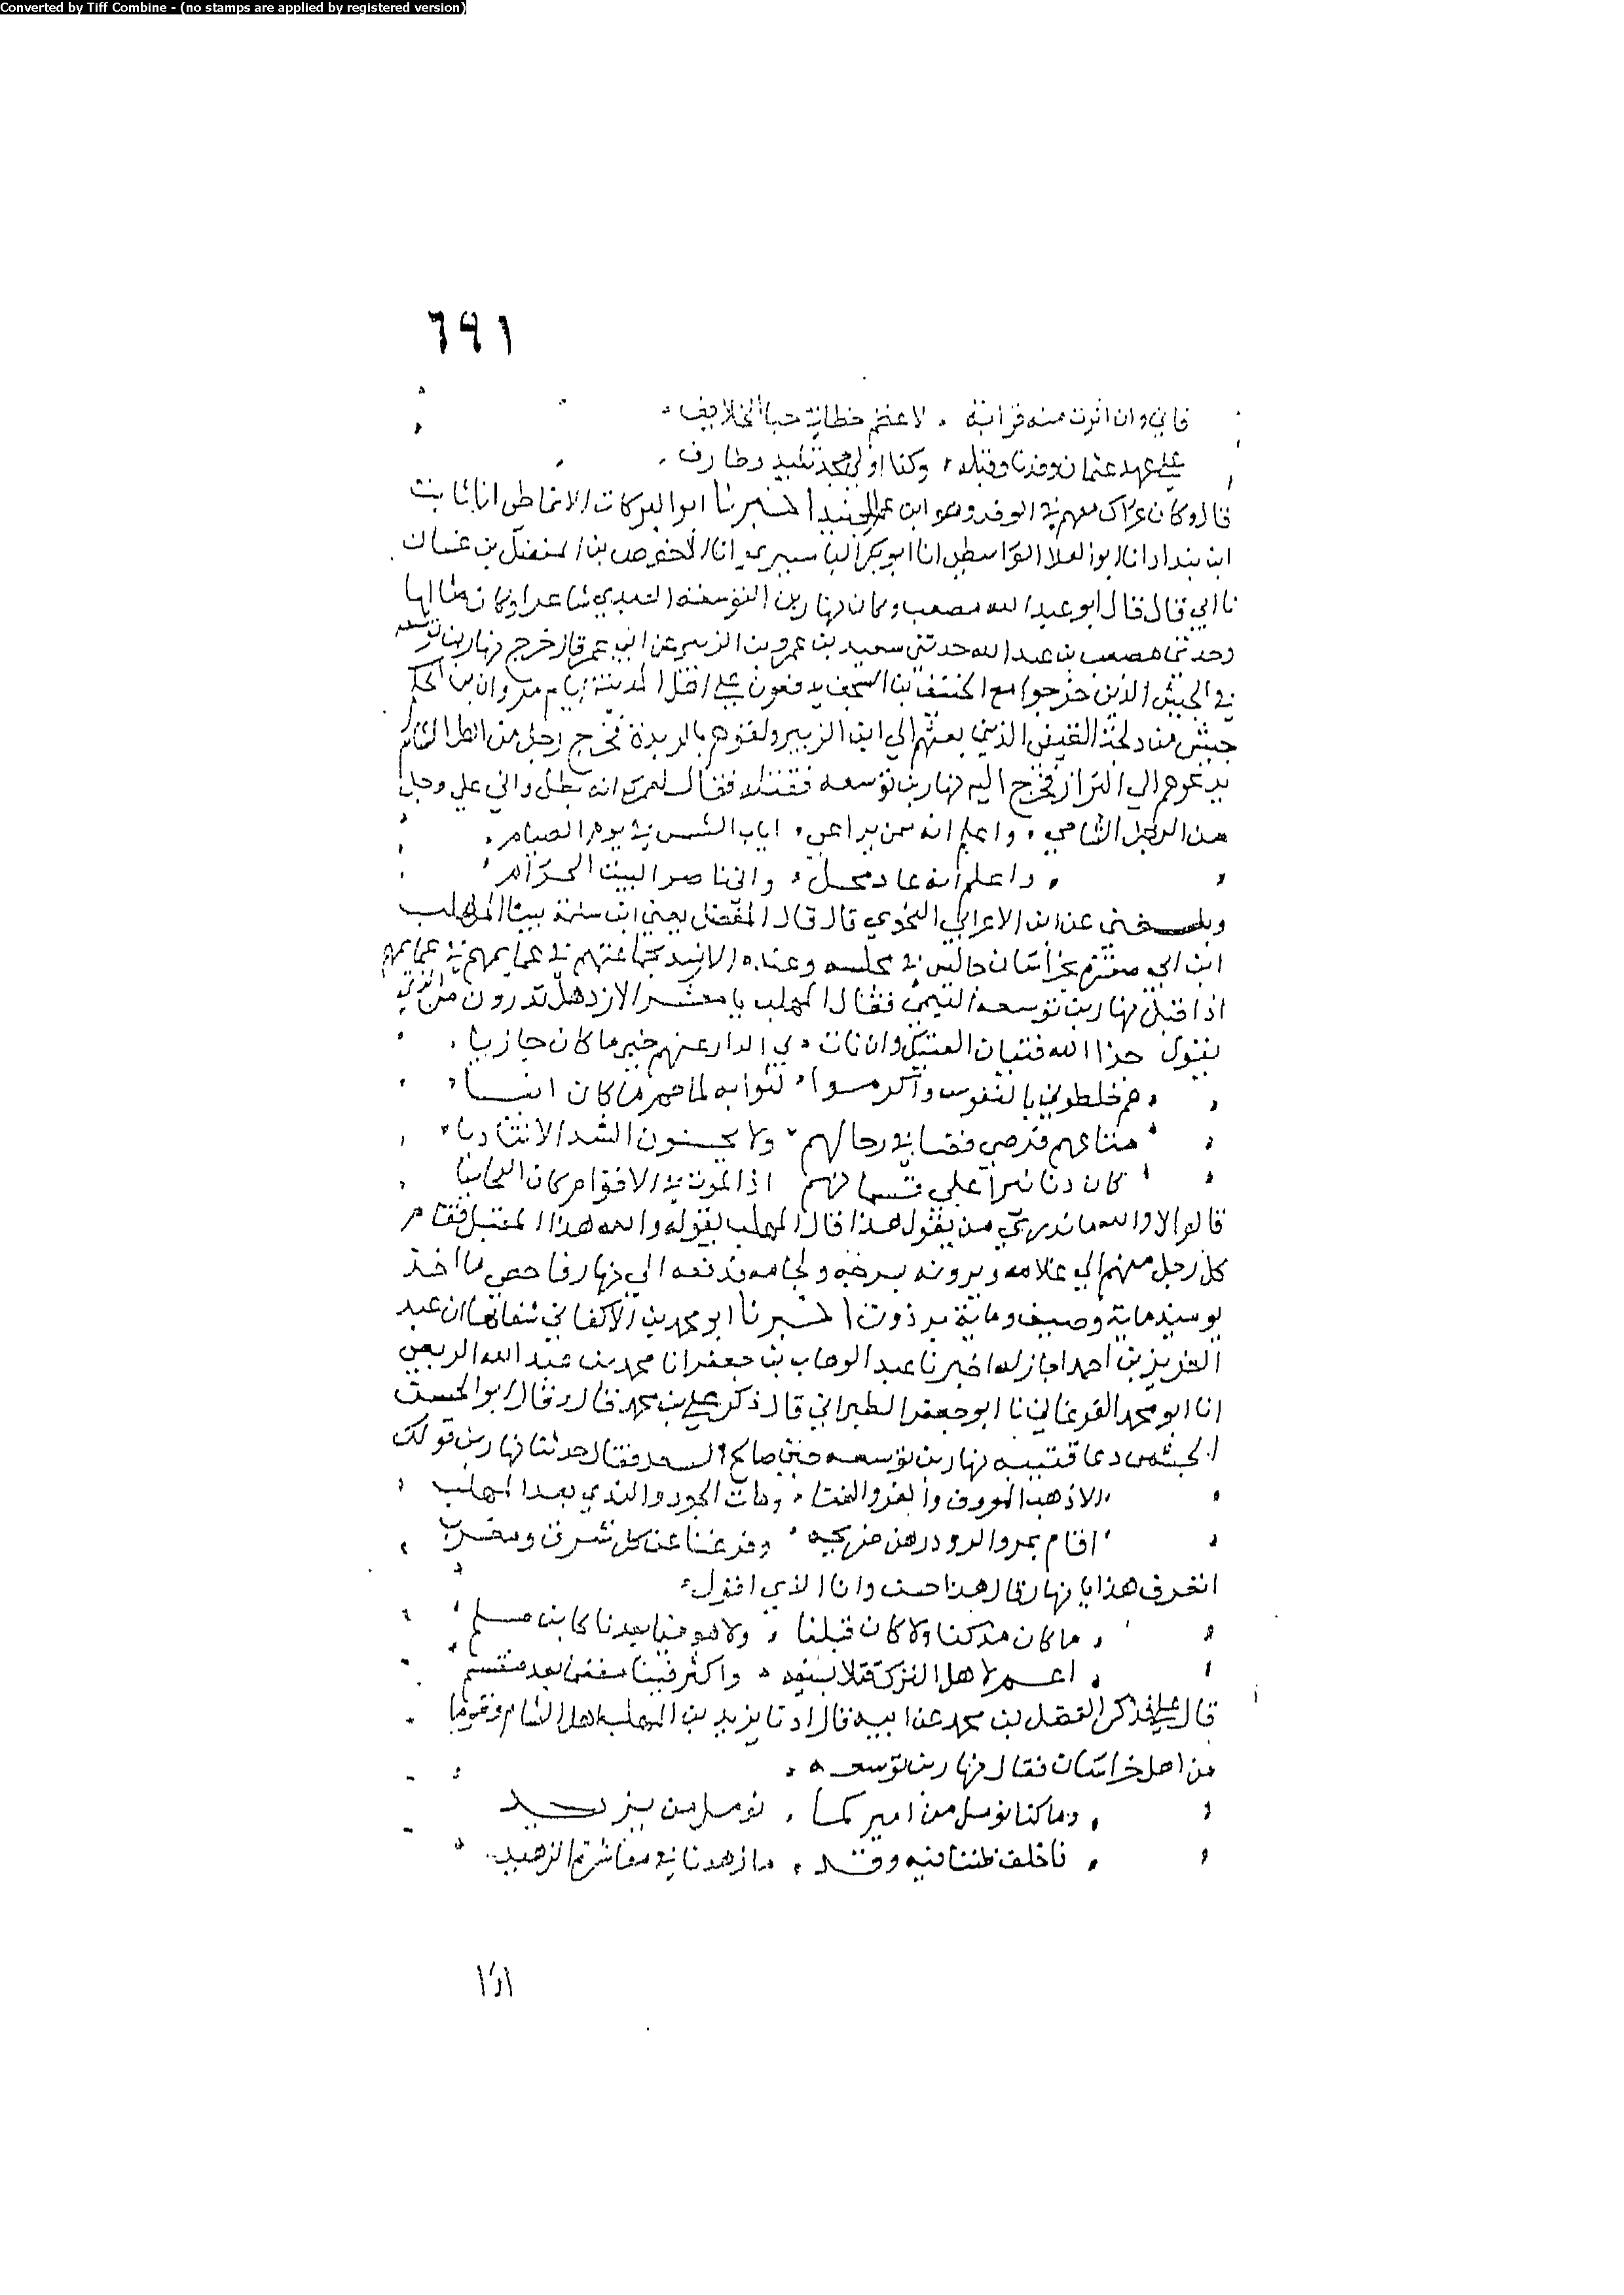 Converted by Tiff Combine - (no stamps are applied by registered version)
٦٩١
فاني وان اثرت منه قرابة لاعظم حبا الخلايف
على عهد عثمان وفدنا وقبله وكنا اولي مجد تليد وطارف
قال وكان عراك معهم في الوفد وهو ابن عم الجنيد اخبرنا ابو البركات الانماطي انا ثابت
ابن بندار انا ابو العلا الواسطي انا ابو بكر البابسيري انا الاحوص بن المفضل بن غسان
نا ابي قال قال ابو عبد الله مصعب وكان نهار بن التوسعة شاعرا وكان
وحدثني مصعب بن عبد الله حدثني سعيد بن عمرو بن الزبير عن ابيه عمر قال خرج نهار بن توسعه
في الجيش الذين خرجوا مع الحنتف بن السجف يدفعون على اهل المدينة ايام مروان بن الحكم
جيش بن دلجة القيني الذين بعثهم الي ابن الزبير ولقوهم بالربذة فخرج رجل من اهل الشام
يدعوهم الي البراز فخرج اليه نهار بن توسعه فقتله فقال لعمرك انه بطل واني علي وجل
من الرجل الشامي واعلم انه ممن يراعي اياب الشمس في يوم الصيام
واعلم انه عاد محل واني ناصر البيت الحرام
وبلغني عن ابن الاعرابي النحوي قال قال المفضل يعني ابن سلمة بينا المهلب
ابن ابي صفرة بخراسان جالس في مجلسه وعنده الازد بجماعتهم في عمايمهم
اذ اقبل نهار بن توسعة التيمي فقال المهلب يا معشر الازد هل تدرون من الذي
يقول جزا الله فتيان العتيك وان نات بي الدار عنهم خير ما كان جازيا
هم خلطوني بالنفوس واكرموا لثوابه لما حم ما كان اتيا
متاعهم فوضي فضا في رحالهم ولا يحسنون الشد الا تناديا
كان دنانيرا علي قسماتهم اذا الموت في الاقوام كان
قالوا لا والله ما ندري من يقول هذا قال المهلب يقوله والله هذا المقبل فقام
كل رجل منهم الي غلامه وبرذونه بسرجه ولجامه فدفعه الي نهار فاحصي ما اخذ
يوميذ ماية وصيف وماية برذون اخبرنا ابو محمد بن الاكفاني شفاها ان عبد
العزيز بن احمد اجاز له اخبرنا عبد الوهاب بن جعفر انا محمد بن عبد الله الربعي
انا ابو محمد الفرغاني نا ابو جعفر الطبراني قال ذكر علي بن محمد قال وقال ابو الحسن
الجشمي دعا قتيبه نهار بن توسعه حين صالح السعد فقال حدثنا نهار بن قولك
الا ذهب المعروف والغزو الغنا ومات الجود والندي بعد المهلب
اقام بمرو الرود رهن ضريحه وقد غنا عن كل شرق ومغرب
هذا يا نهار قال هذا حسن وانا الذي اقول
ما كان مذ كنا ولا كان قبلنا ولا هو فينا بعدنا كابن مسلم
اعم لاهل الترك قتلا بسيفه واكثر فينا بعد مقسم
قال علي فذكر الفضل بن محمد عن ابيه قال ادنا يزيد بن المهلب اهل الشام وقوما
من اهل خراسان فقال نهار بن توسعه
وما كنا نومل من امير كما نومل من يزيد
فاخلف ظننا فيه وقد ما زهدنا في معاشرة الزهيد